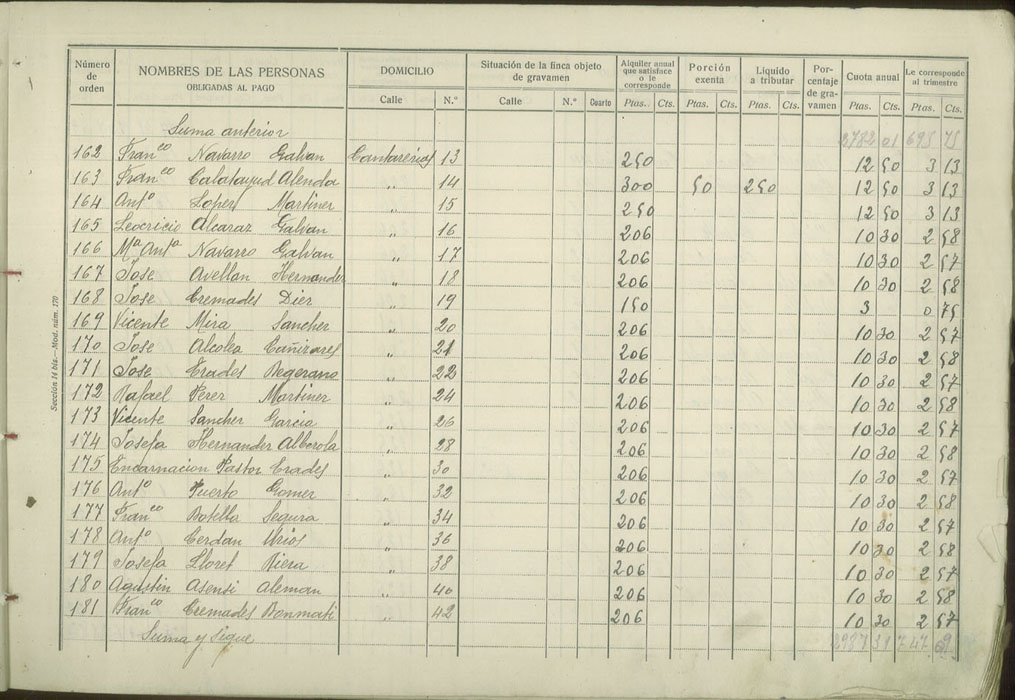 Número de orden | NOMBRES DE LAS PERSONAS OBLIGADAS AL PAGO | DOMICILIO | Situación de la finca objeto de gravamen | Alquiler anual que satisface o le corresponde | Porción exenta | Líquido a tributar | Porcentaje de gravamen | Cuota anual | Le corresponde al trimestre
Calle | N.º | Calle | N.º | Cuarto | Ptas. | Cts. | Ptas. | Cts. | Ptas. | Cts. | Ptas. | Cts. | Ptas. | Cts.
Suma anterior 2782 01 695 75
162 Franco Navarro Galvan Cantarerias 13 250 12 50 3 13
163 Franco Calatayud Alenda " 14 300 50 250 12 50 3 13
164 Anto Lopez Martinez " 15 250 12 50 3 13
165 Leocricio Alcaraz Galvan " 16 206 10 30 2 58
166 Mª Antª Navarro Galvan " 17 206 10 30 2 57
167 Jose Avellan Hernandez " 18 206 10 30 2 58
168 Jose Cremades Diez " 19 150 3 0 75
169 Vicente Mira Sanchez " 20 206 10 30 2 57
170 Jose Alcolea Cañizares " 21 206 10 30 2 58
171 Jose Erades Begerano " 22 206 10 30 2 57
172 Rafael Perez Martinez " 24 206 10 30 2 58
173 Vicente Sanchez Garcia " 26 206 10 30 2 57
174 Josefa Hernandez Alberola " 28 206 10 30 2 58
175 Encarnacion Pastor Erades " 30 206 10 30 2 57
176 Anto Puerto Gomez " 32 206 10 30 2 58
177 Franco Botella Segura " 34 206 10 30 2 57
178 Anto Cerdan Urios " 36 206 10 30 2 58
179 Josefa Lloret Riera " 38 206 10 30 2 57
180 Agustin Asensi Aleman " 40 206 10 30 2 58
181 Franco Cremades Bonmati " 42 206 10 30 2 57
Suma y Sigue 2987 31 747
Sección 14 bis.—Mod. núm. 170